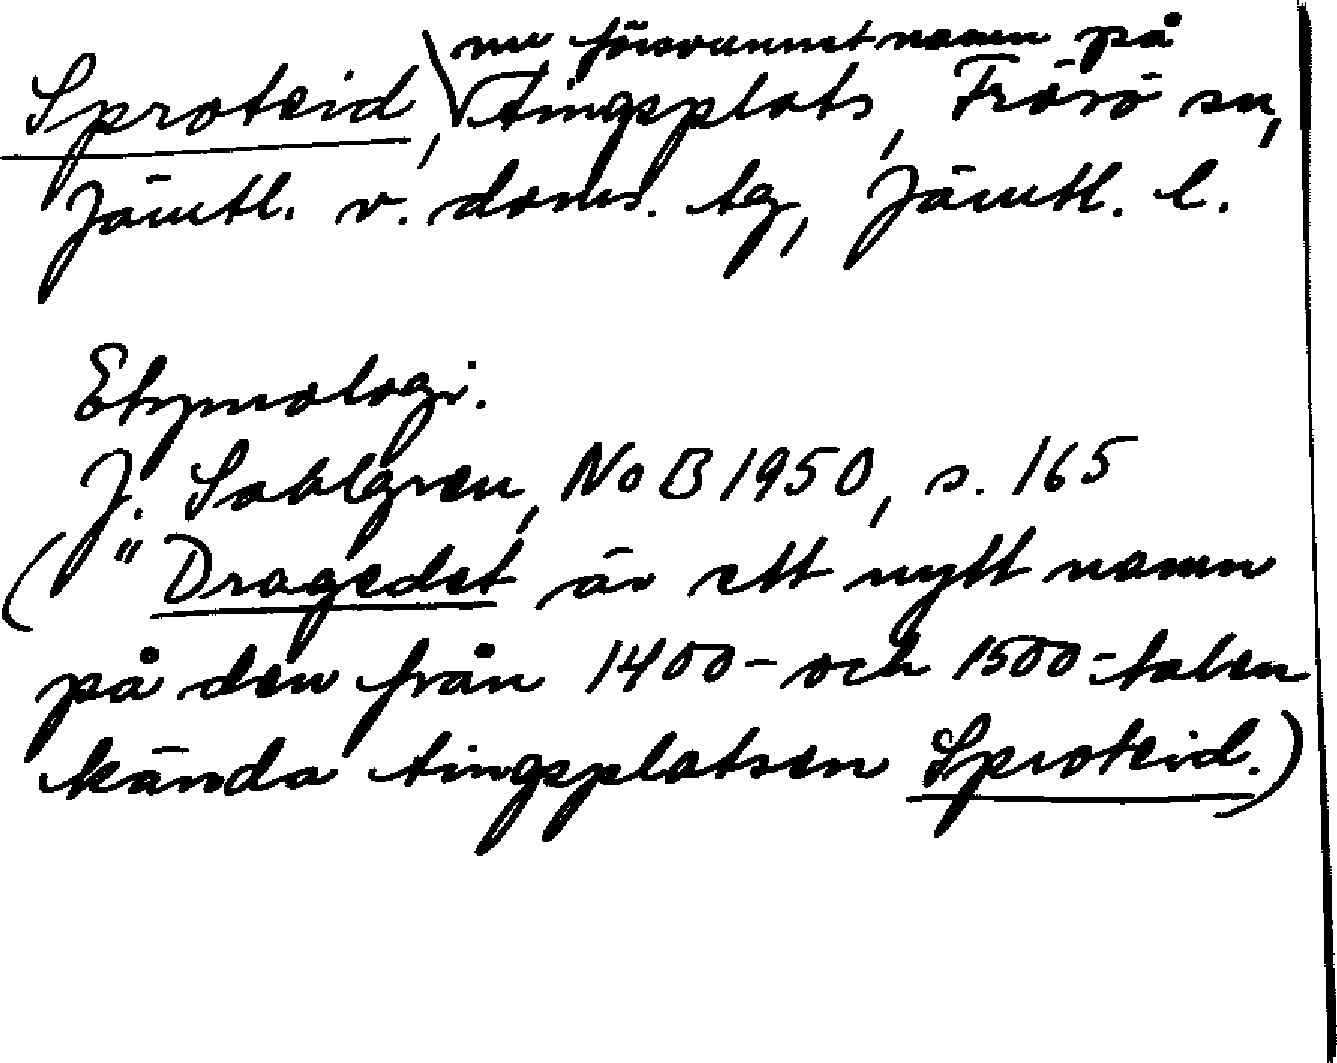 nu försvunnet namn på
Sproteid, tingsplats, Frösö sn,
Jämtl. v. doms. tg, Jämtl. l.
Etymologi.
J. Sahlgren, NoB 1950, s. 165
("Dragedet är ett nytt namn
på den från 1400- och 1500-talen
kända tingsplatsen Sproteid.)